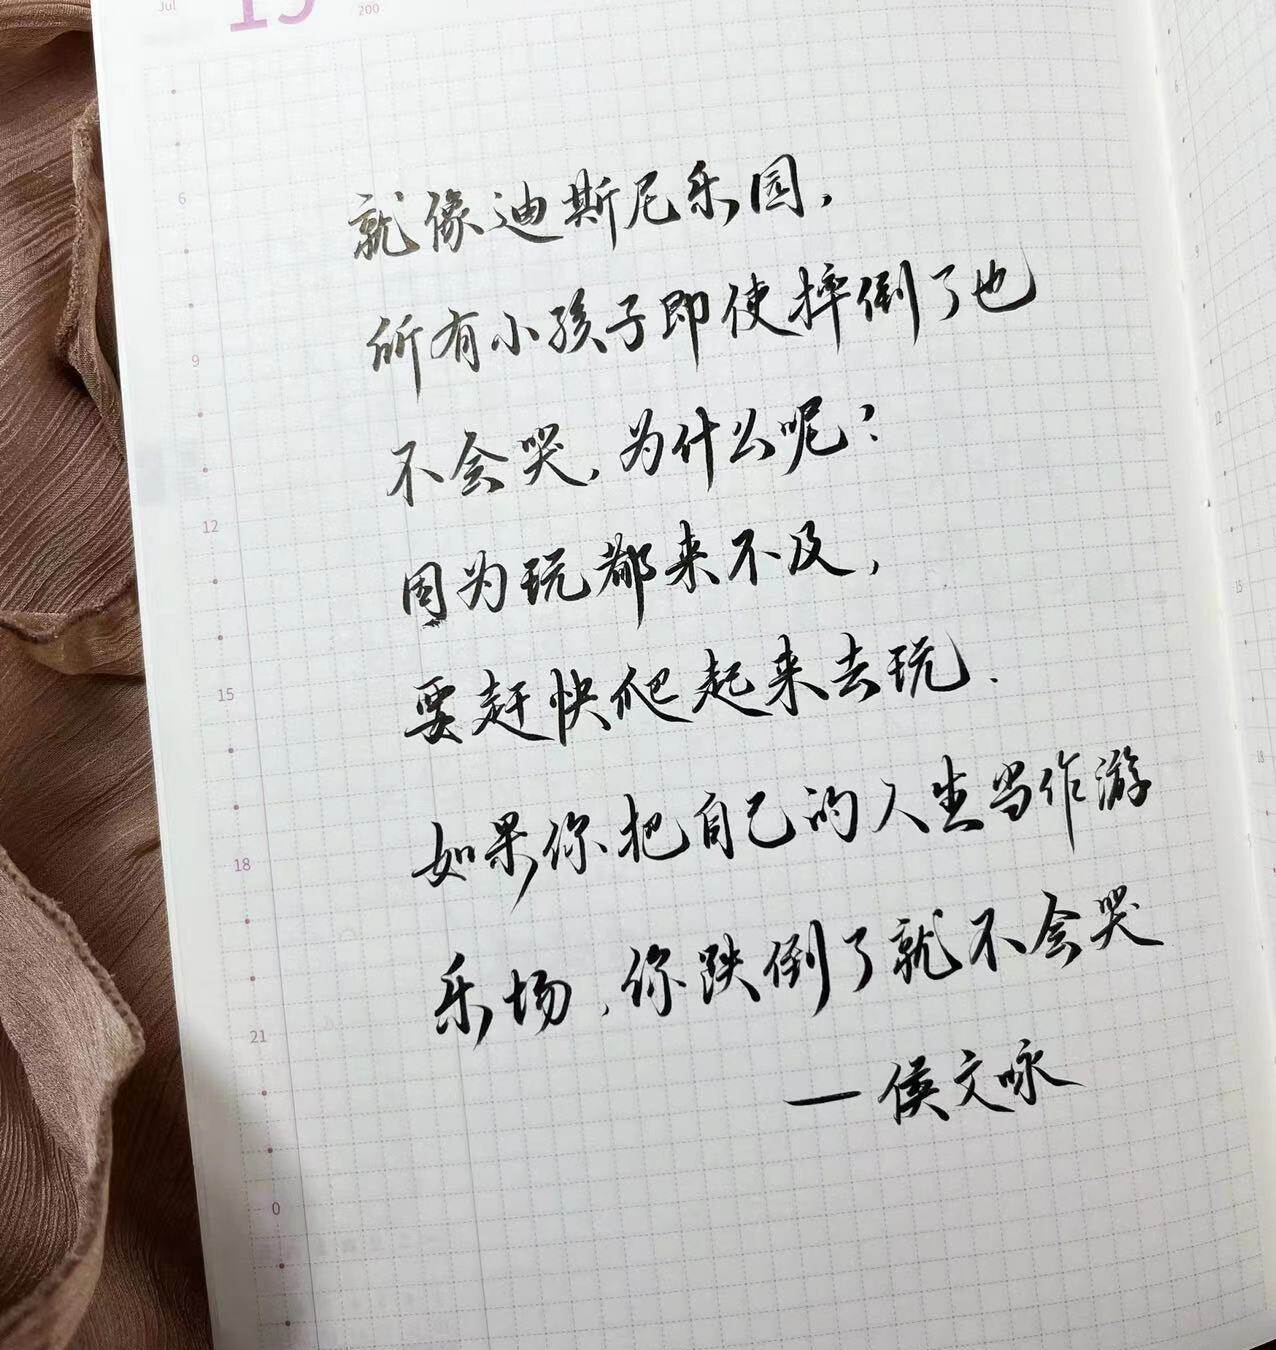 Jul
19
200
6
9
12
15
18
21
0
就像迪斯尼乐园，
所有小孩子即使摔倒了也
不会哭，为什么呢？
因为玩都来不及，
要赶快爬起来去玩.
如果你把自己的人生当作游
乐场，你跌倒了就不会哭
—侯文咏
9
12
15
18